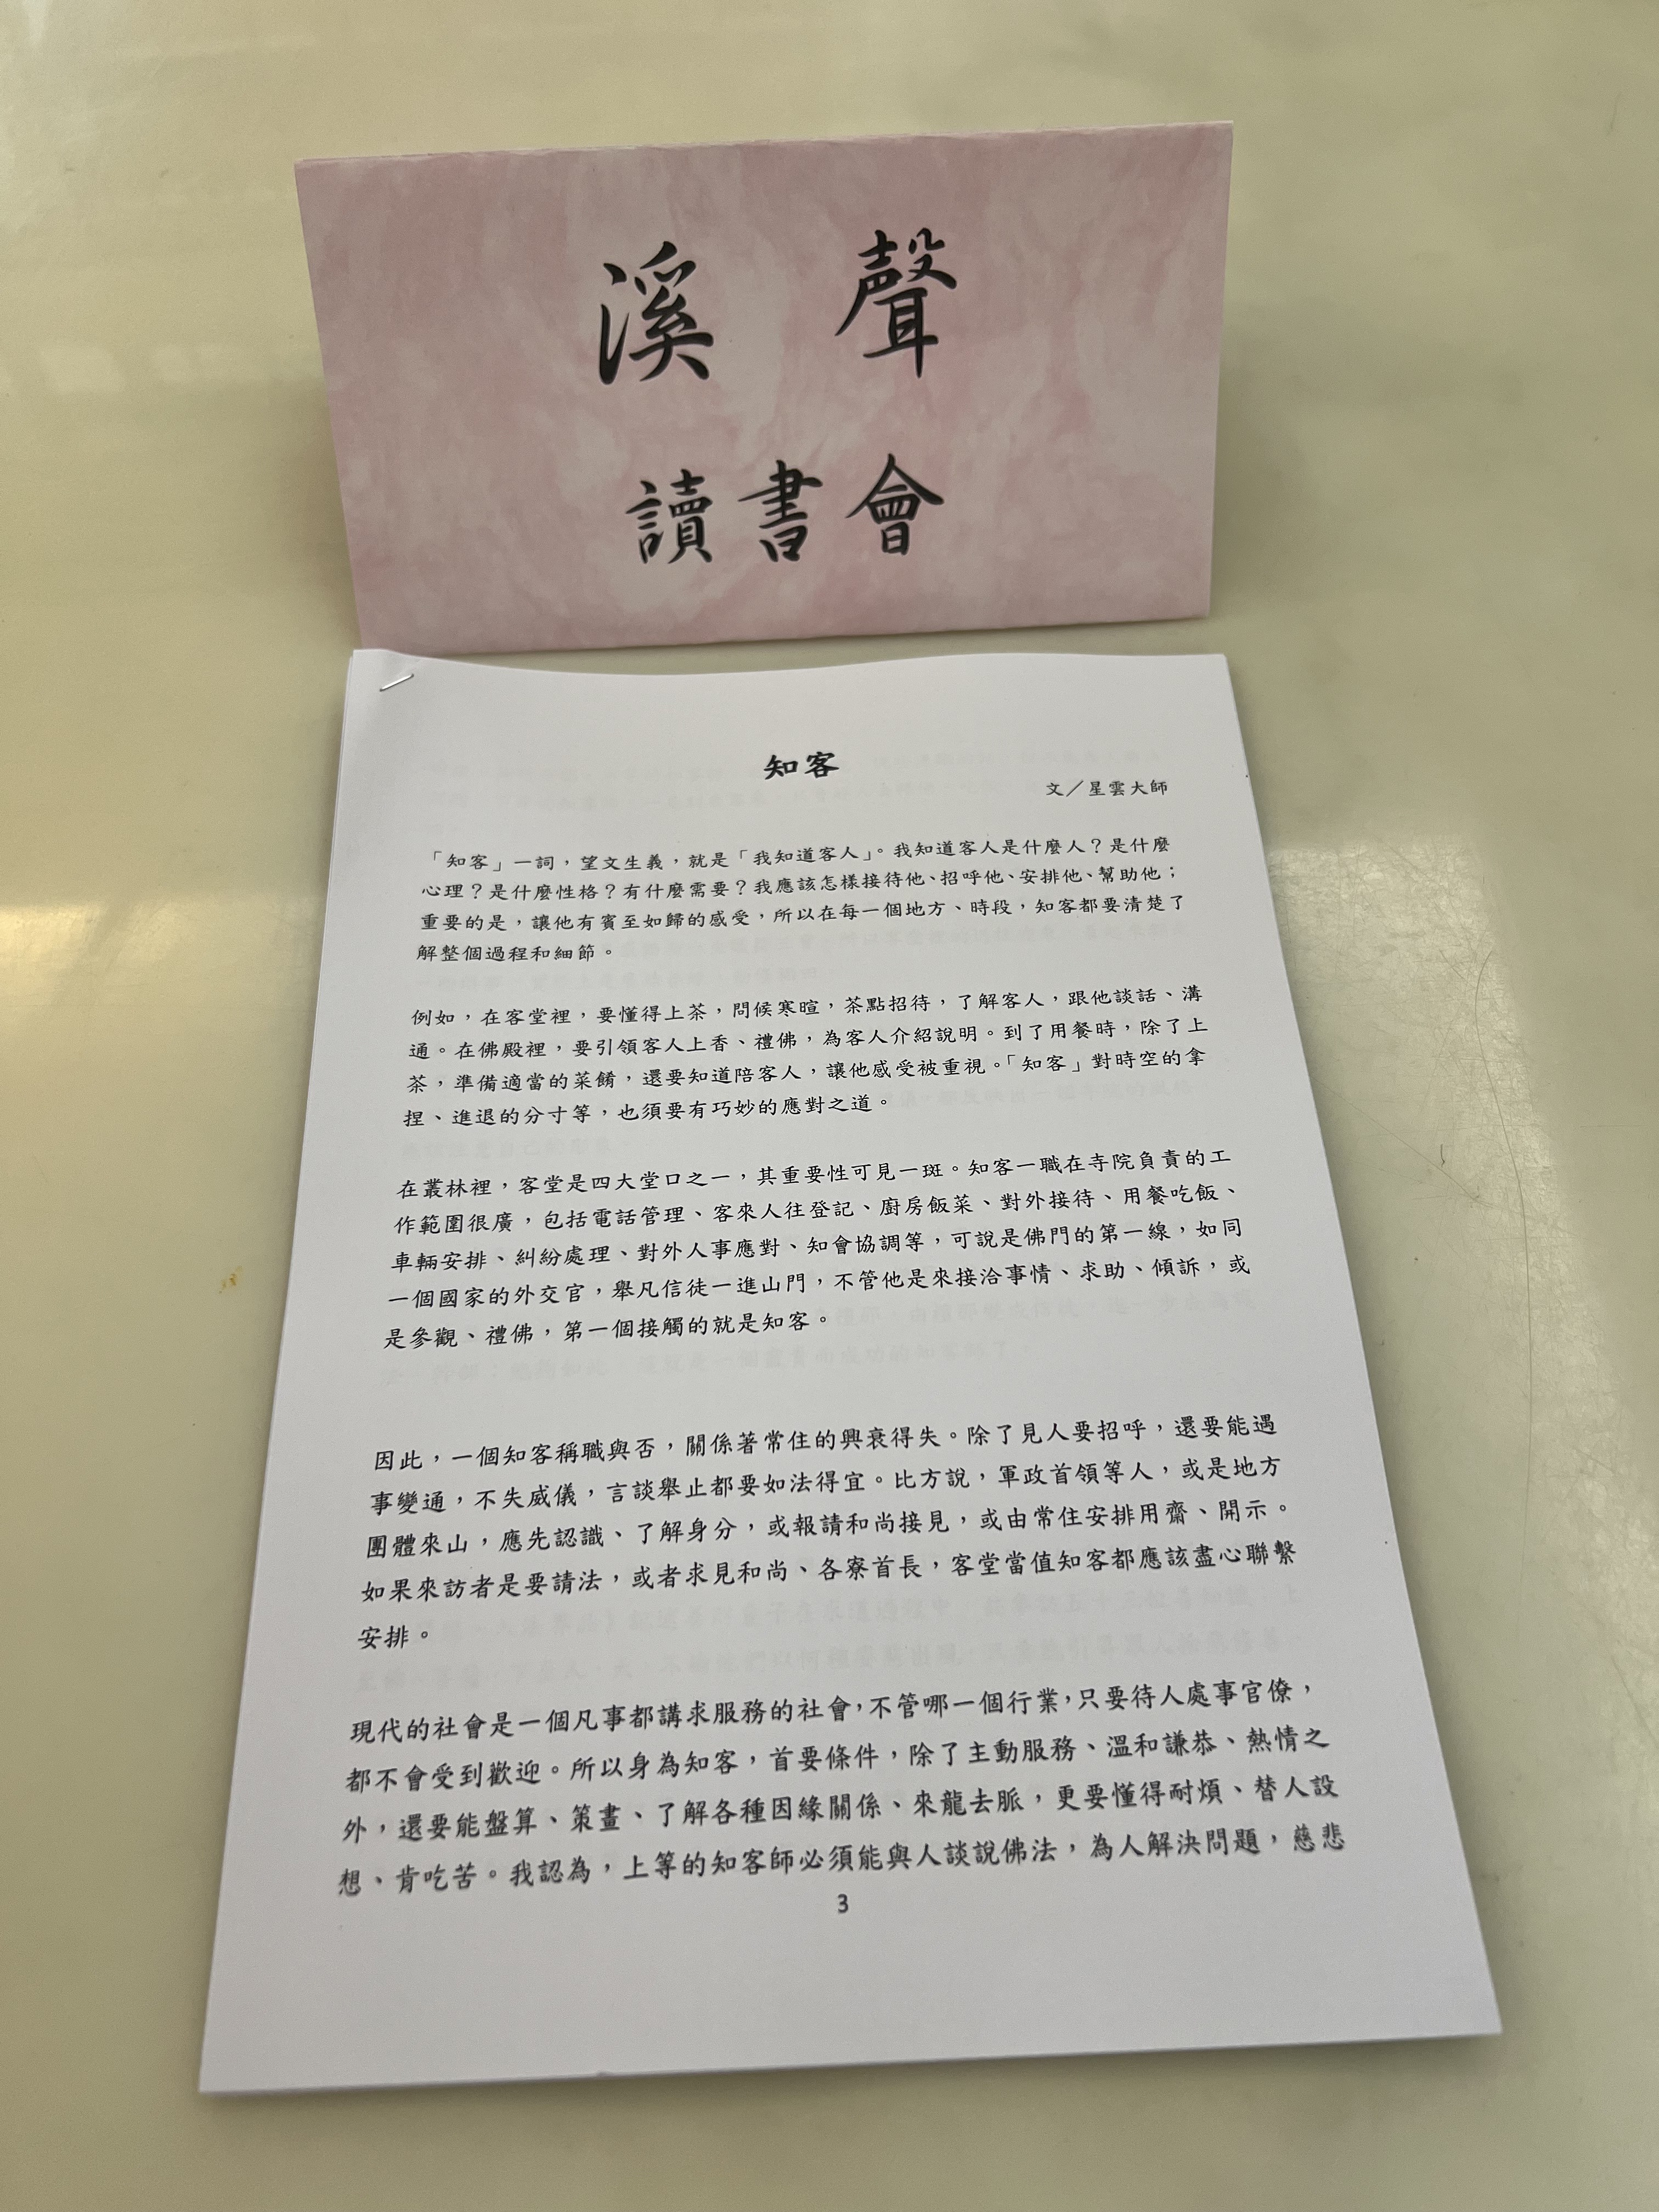 溪 聲
讀書會
知客
文／星雲大師
「知客」一詞，望文生義，就是「我知道客人」。我知道客人是什麼人？是什麼
心理？是什麼性格？有什麼需要？我應該怎樣接待他、招呼他、安排他、幫助他；
重要的是，讓他有賓至如歸的感受，所以在每一個地方、時段，知客都要清楚了
解整個過程和細節。
例如，在客堂裡，要懂得上茶，問候寒暄，茶點招待，了解客人，跟他談話、溝
通。在佛殿裡，要引領客人上香、禮佛，為客人介紹說明。到了用餐時，除了上
茶，準備適當的菜餚，還要知道陪客人，讓他感受被重視。「知客」對時空的拿
捏、進退的分寸等，也須要有巧妙的應對之道。
在叢林裡，客堂是四大堂口之一，其重要性可見一斑。知客一職在寺院負責的工
作範圍很廣，包括電話管理、客來人往登記、廚房飯菜、對外接待、用餐吃飯、
車輛安排、糾紛處理、對外人事應對、知會協調等，可說是佛門的第一線，如同
一個國家的外交官，舉凡信徒一進山門，不管他是來接洽事情、求助、傾訴，或
是參觀、禮佛，第一個接觸的就是知客。
因此，一個知客稱職與否，關係著常住的興衰得失。除了見人要招呼，還要能遇
事變通，不失威儀，言談舉止都要如法得宜。比方說，軍政首領等人，或是地方
團體來山，應先認識、了解身分，或報請和尚接見，或由常住安排用齋、開示。
如果來訪者是要請法，或者求見和尚、各寮首長，客堂當值知客都應該盡心聯繫
安排。
現代的社會是一個凡事都講求服務的社會，不管哪一個行業，只要待人處事官僚，
都不會受到歡迎。所以身為知客，首要條件，除了主動服務、溫和謙恭、熱情之
外，還要能盤算、策畫、了解各種因緣關係、來龍去脈，更要懂得耐煩、替人設
想、肯吃苦。我認為，上等的知客師必須能與人談說佛法，為人解決問題，慈悲
3